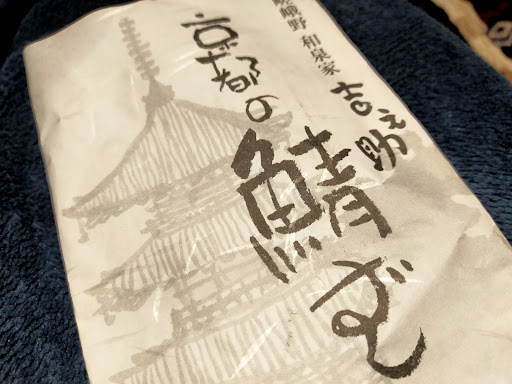 嵯峨野 和泉家
吉之助
京都の
鯖ずし